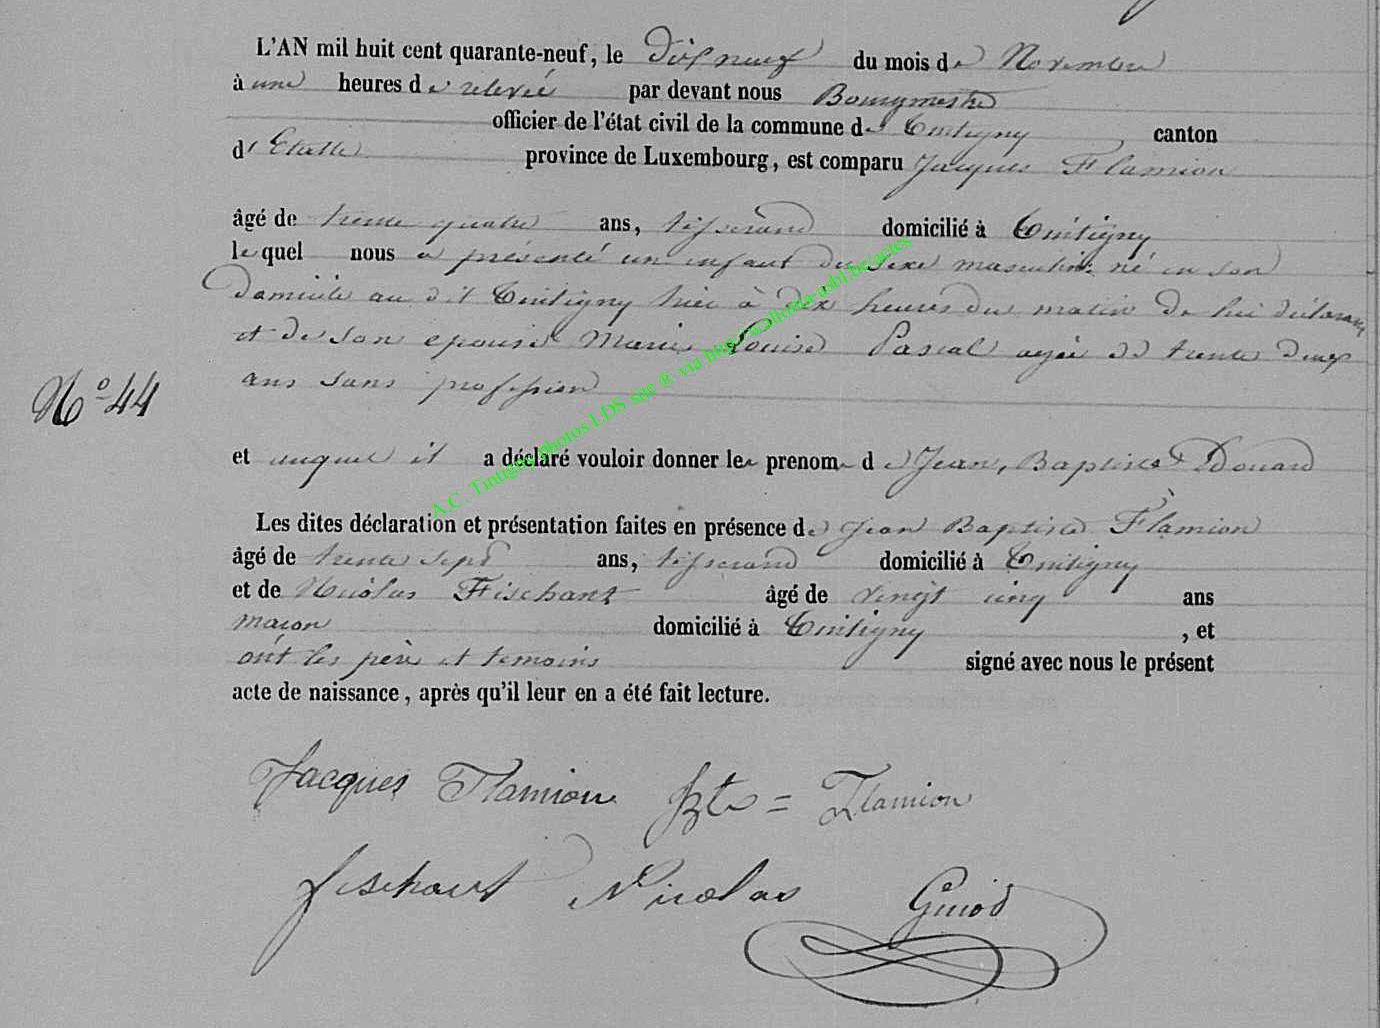 L'AN mil huit cent quarante-neuf, le dix neuf du mois de Novembre
à une heures de relevée par devant nous Bourgmestre
officier de l'état civil de la commune de Tintigny canton
d'Etalle province de Luxembourg, est comparu Jacques Flamion
âgé de trente quatre ans, tisserand domicilié à Tintigny
lequel nous a présenté un enfant du sexe masculin né en son
domicile au dit Tintigny hier à dix heures du matin de lui déclarant
et de son epouse Marie Louise Pascal agée de trente deux
ans sans profession
N° 44
et auquel il a déclaré vouloir donner les prenoms de Jean, Baptiste Douard
Les dites déclaration et présentation faites en présence de Jean Baptiste Flamion
âgé de trente sept ans, tisserand domicilié à Tintigny
et de Nicolas Fischant âgé de vingt cinq ans
macon domicilié à Tintigny , et
ont les père et temoins signé avec nous le présent
acte de naissance, après qu'il leur en a été fait lecture.
Jacques Flamion JBte = Flamion
fischant Nicolas Guiod
A.C. Tintigny photos LDS site ® via http://wallonia-asbl.be/actes